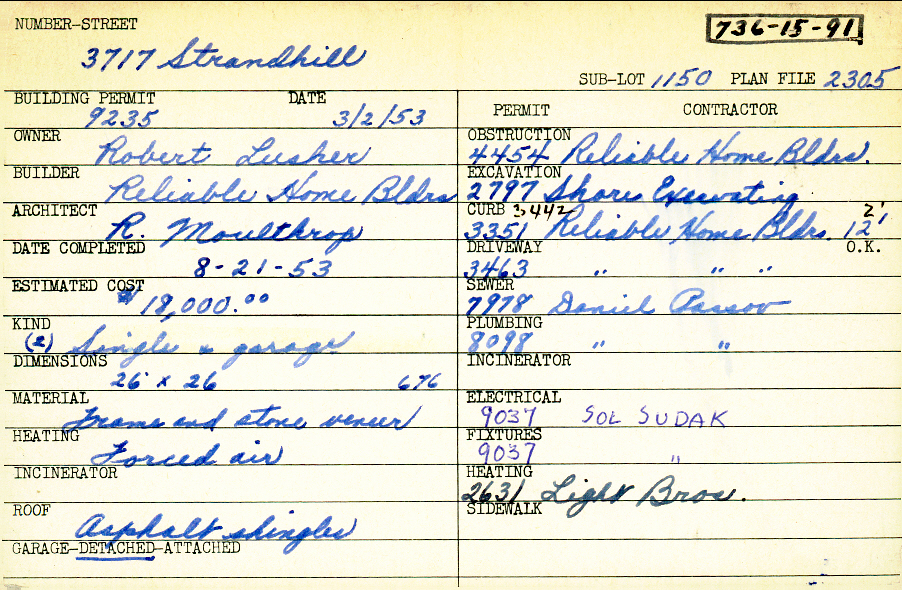 NUMBER-STREET
736-15-91
3717 Strandhill
SUB-LOT 1150 PLAN FILE 2305
BUILDING PERMIT DATE
9235 3/2/53
OWNER
Robert Lusher
BUILDER
Reliable Home Bldrs
ARCHITECT
R. Moulthrop
DATE COMPLETED
8-21-53
ESTIMATED COST
$18,000.00
KIND
(2) Single & garage
DIMENSIONS
26' x 26 676
MATERIAL
Frame and stone veneer
HEATING
Forced air
INCINERATOR
ROOF
Asphalt shingles
GARAGE-DETACHED-ATTACHED
PERMIT CONTRACTOR
OBSTRUCTION
4454 Reliable Home Bldrs.
EXCAVATION
2797 Shore Excavating
CURB 3442 2'
3351 Reliable Home Bldrs. 12'
DRIVEWAY O.K.
3463 " " "
SEWER
7978 Daniel Passov
PLUMBING
8098 " "
INCINERATOR
ELECTRICAL
9037 SOL SUDAK
FIXTURES
9037 "
HEATING
2631 Light Bros.
SIDEWALK